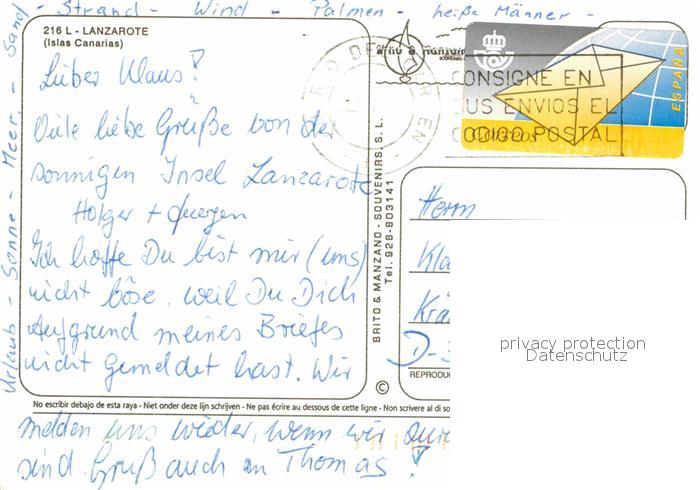 Urlaub - Sonne - Meer - Sand
- Strand - Wind - Palmen - heiße Männer -
216 L - LANZAROTE
(Islas Canarias)
Lieber Klaus!
Viele liebe Grüße von der
sonnigen Insel Lanzarote
Holger + Juergen
Ich hoffe Du bist mir (uns)
nicht böse, weil Du Dich
aufgrund meines Briefes
nicht gemeldet hast. Wir
No escribir debajo de esta raya - Niet onder deze lijn schrijven - Ne pas écrire au dessous de cette ligne - Non scrivere al di so
melden uns wieder, wenn wir
sind. Gruß auch an Thomas!
BRITO & MANZANO - SOUVENIRS, S. L.
Tel. 928-803141
©
CONSIGNE EN
SUS ENVIOS EL
CODIGO POSTAL
ESPAÑA
CORREOS
Herrn
Kla
Krä
D-
REPRODU
privacy protection
Datenschutz